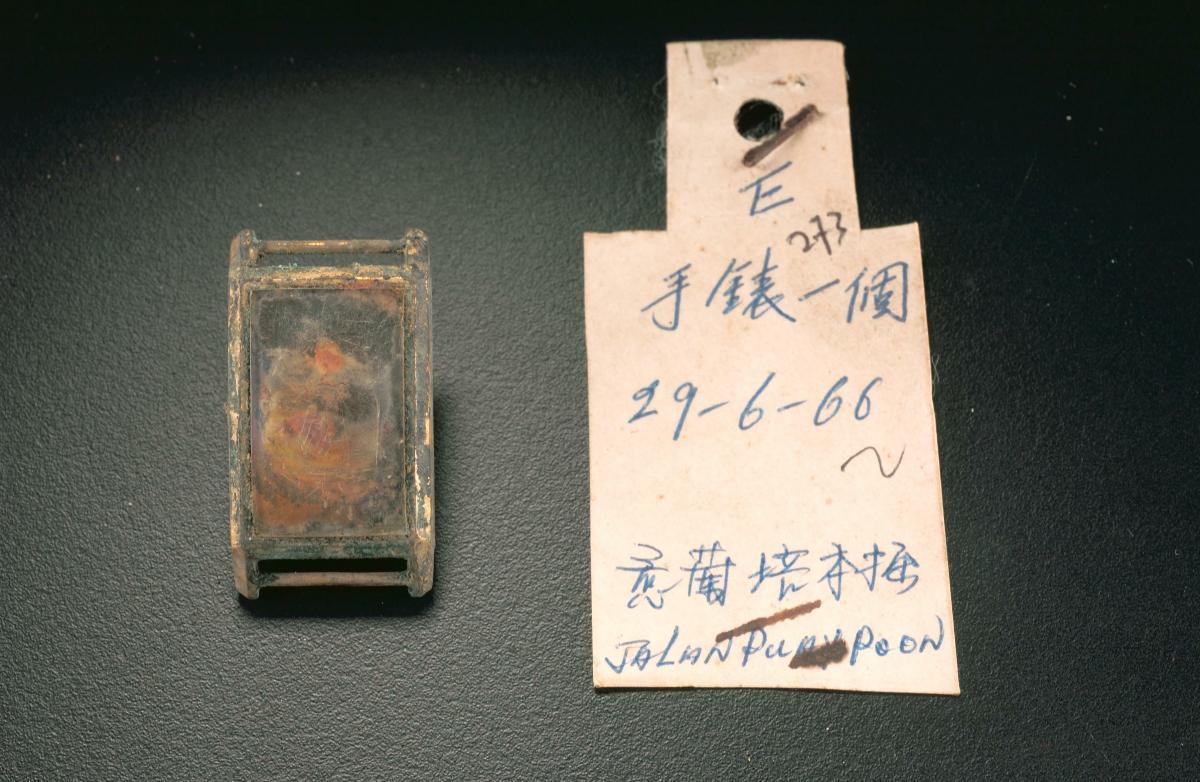 E
273
手錶一個
29-6-66
惹蘭培本掘
JALAN PUAY POON